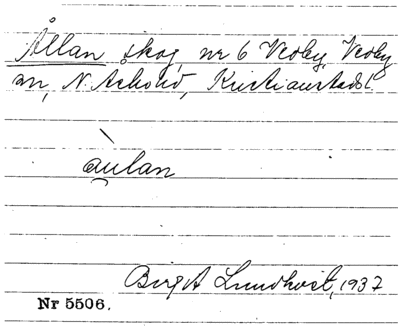 Ållan skog, nr 6 Vedby, Vedby
sn, N. Åsbohd, Kristianstads l.
àu̯lan
Birgit Lundkvist, 1937
Nr 5506.